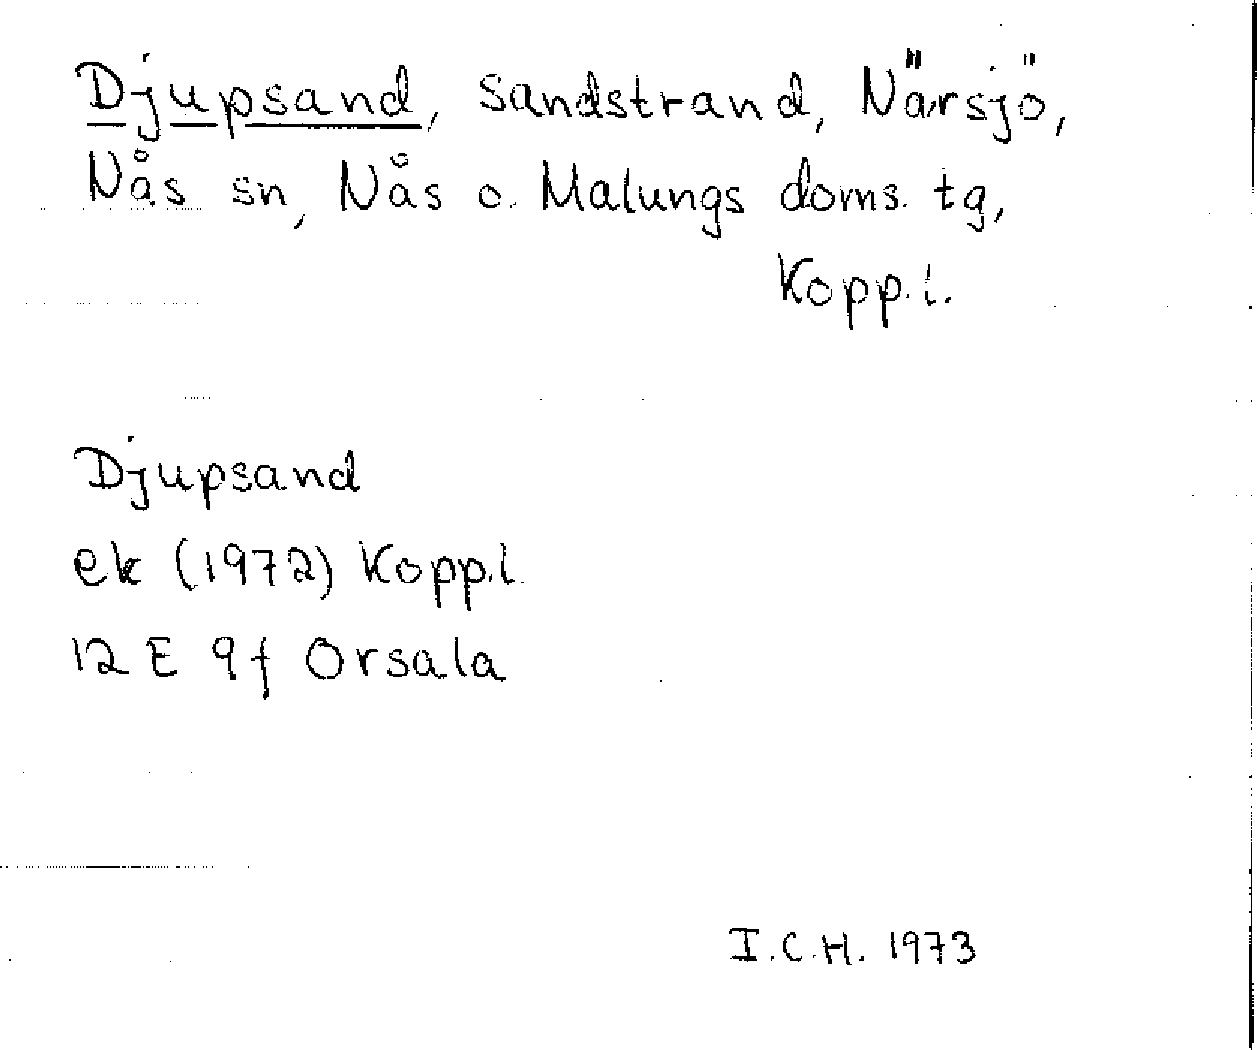 Djupsand, sandstrand, Närsjö,
Nås sn, Nås o. Malungs doms. tg,
Kopp.l.
Djupsand
ek (1972) Kopp.l.
12 E 9f Orsala
I.C.H. 1973